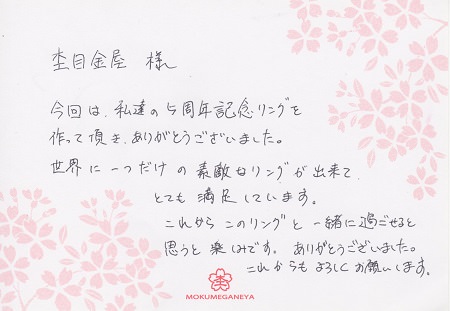 杢目金屋 様
今回は、私達の5周年記念リングを
作って頂き、ありがとうございました。
世界に一つだけの素敵なリングが出来て、
とても満足しています。
これからこのリングと一緒に過ごせると
思うと楽しみです。ありがとうございました。
これからもよろしくお願いします。
杢
MOKUMEGANEYA